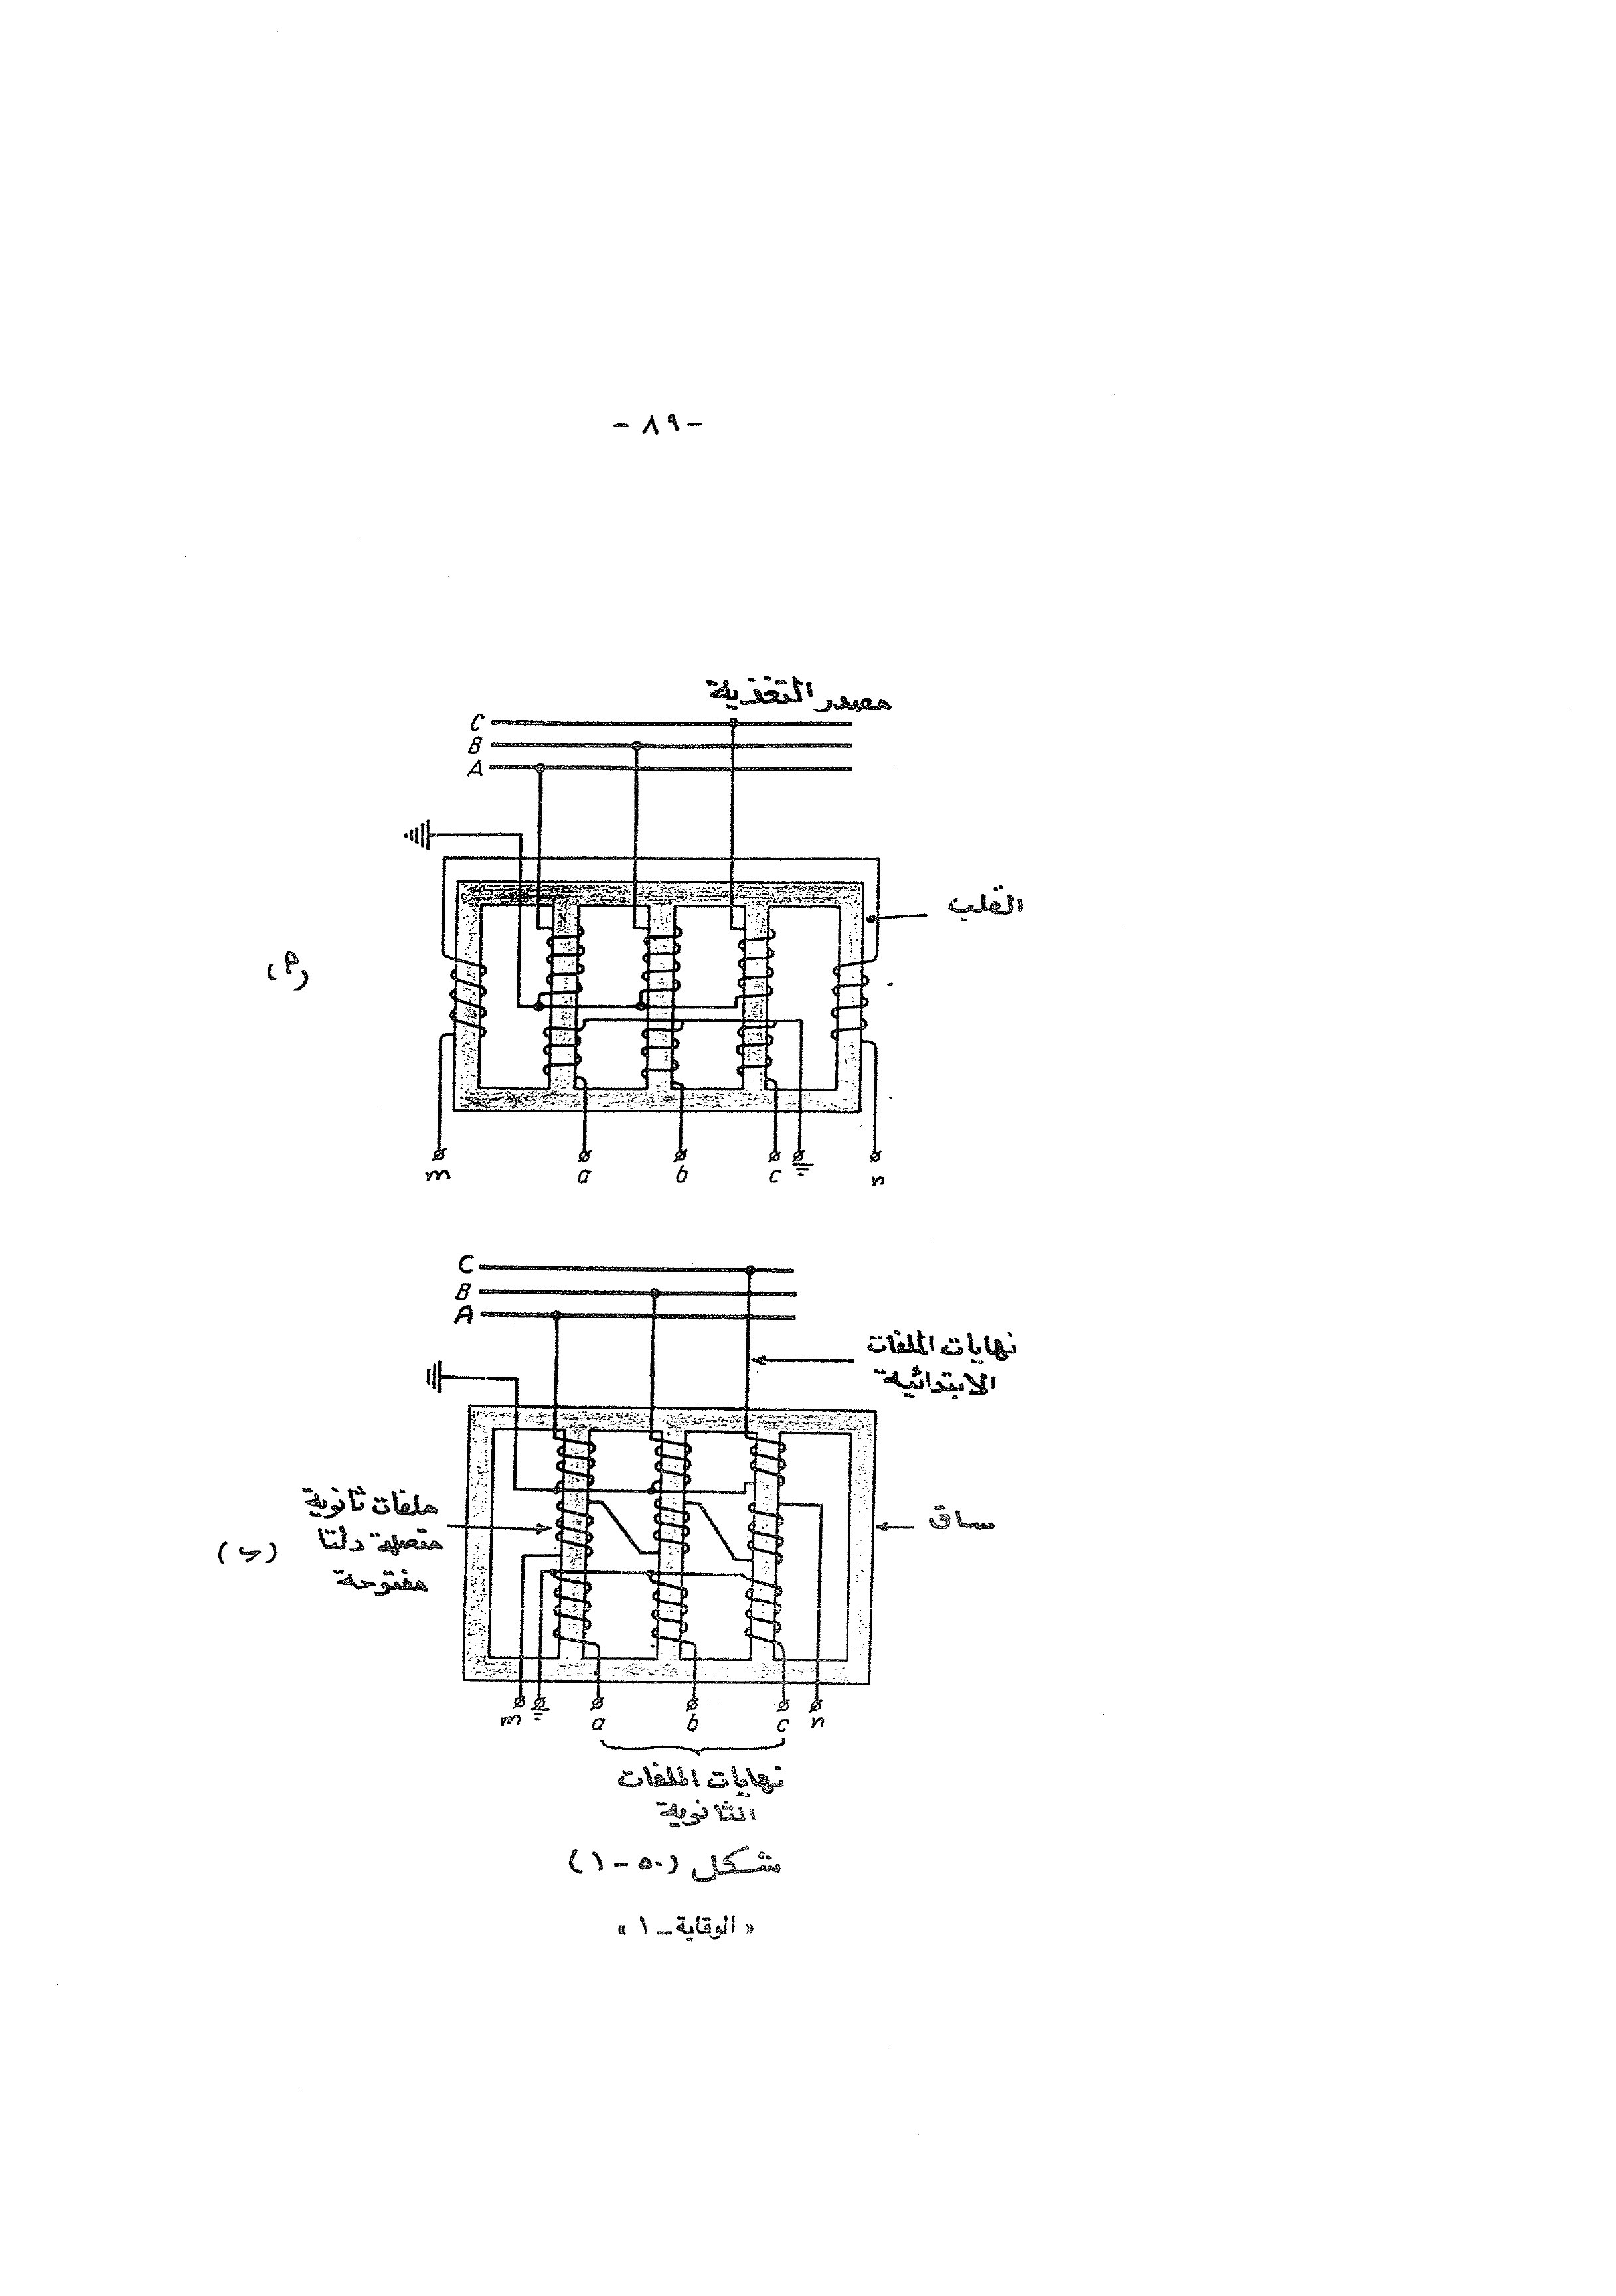 - ٨٩ -
مصدر التغذية
C
B
A
القلب
(أ)
m a b c n
C
B
A
نهايات الملفات
الابتدائية
ملفات ثانوية
متصلة دلتا
مفتوحة
ساق
(ب)
m a b c n
نهايات الملفات
الثانوية
شكل (٥٠-١)
«الوقاية - ١»